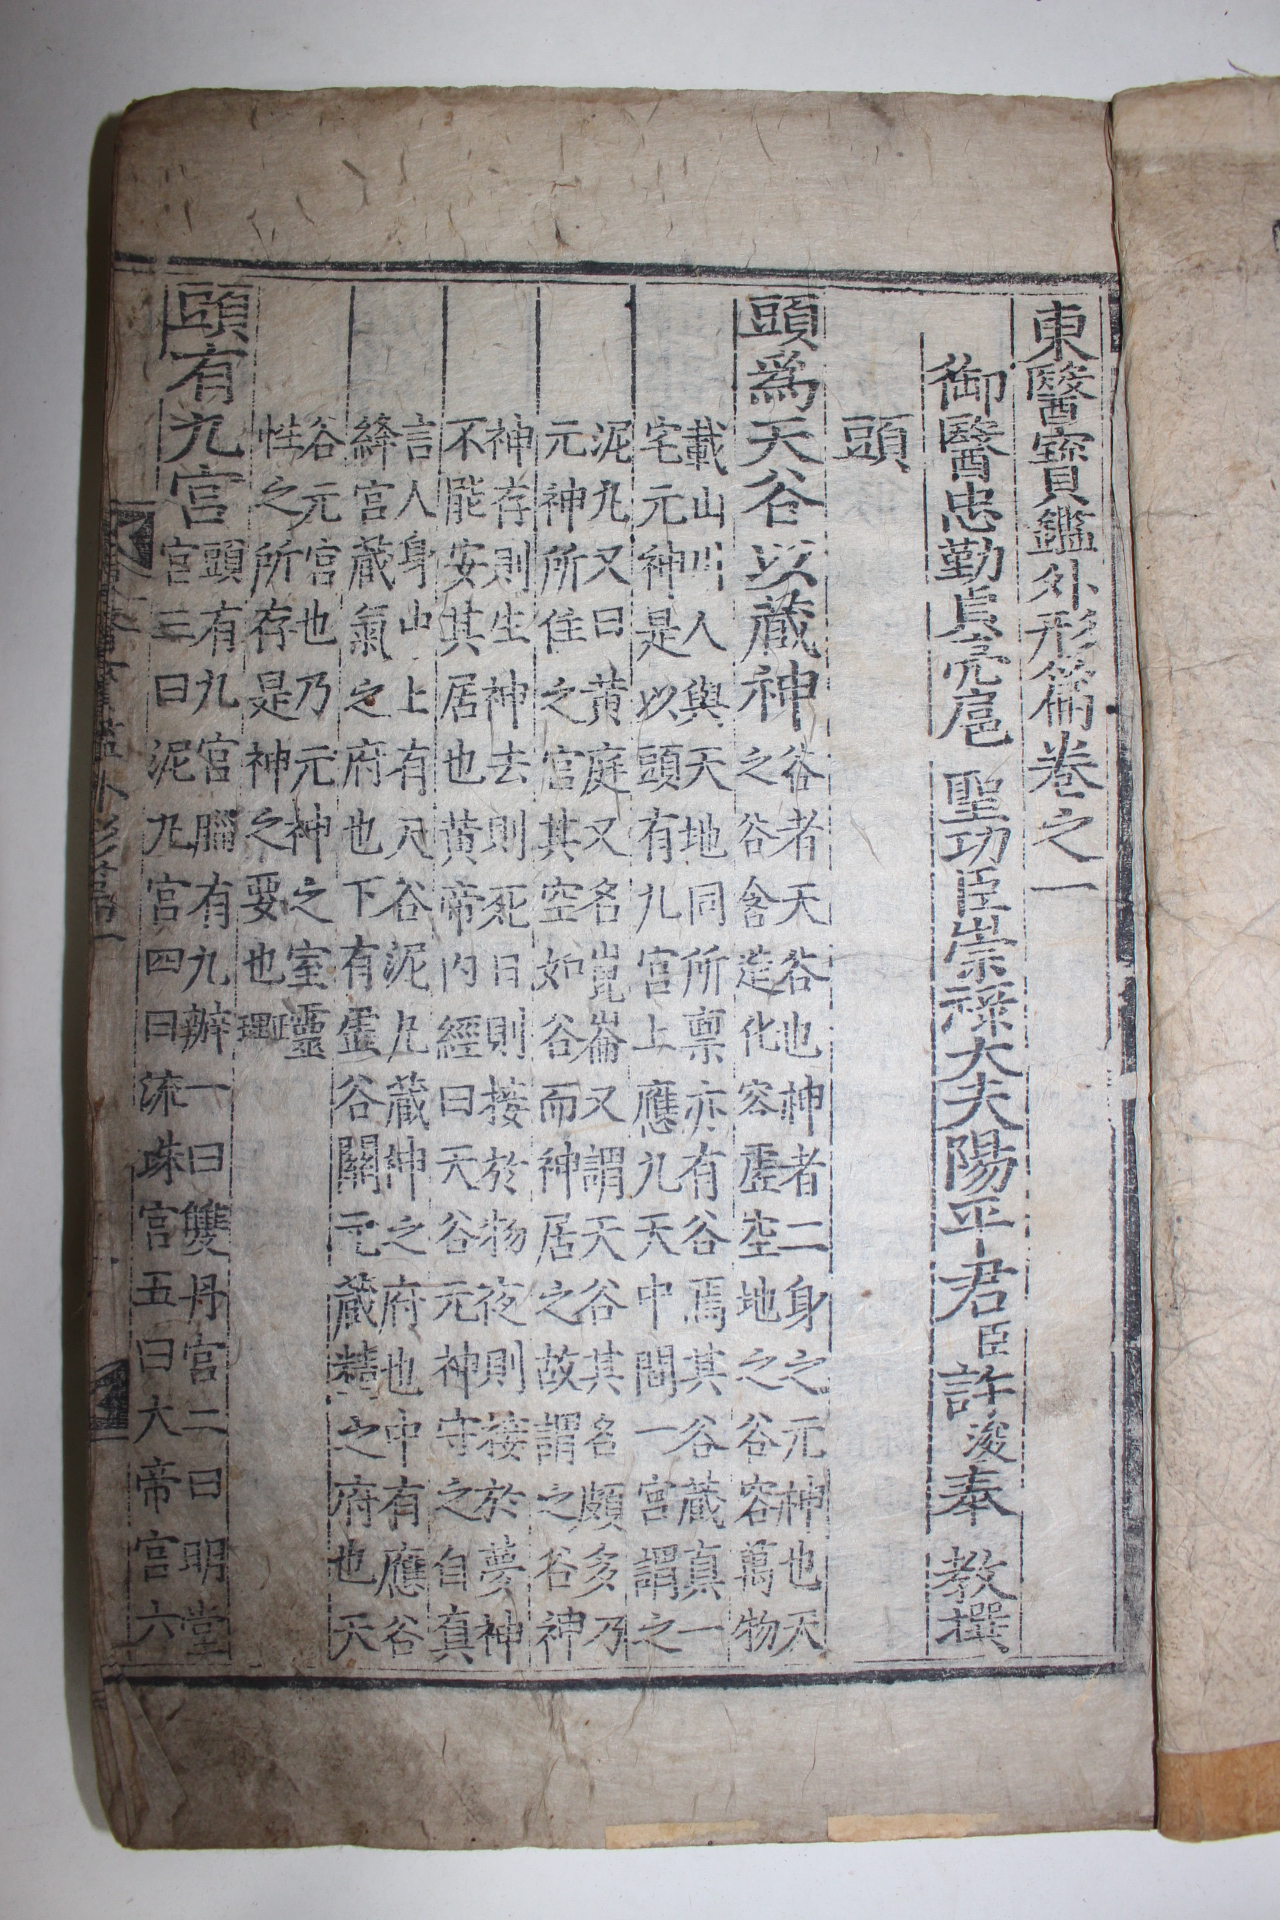 東醫寶鑑外形篇卷之一
御醫忠勤貞亮扈 聖功臣崇祿大夫陽平君臣許浚奉 教撰
頭
頭爲天谷以藏神
谷者天谷也神者一身之元神也天
之谷含造化容虛空地之谷容萬物
載山川人與天地同所稟亦有谷焉其谷藏真一
宅元神是以頭有九宮上應九天中間一宮謂之
泥丸又曰黃庭又名崑崙又謂天谷其名頗多乃
元神所住之宮其空如谷而神居之故謂之谷神
神存則生神去則死日則接於物夜則接於夢神
不能安其居也黃帝內經曰天谷元神守之自真
言人身中上有天谷泥丸藏神之府也中有應谷
絳宮藏氣之府也下有虛谷關元藏精之府也天
谷元宮也乃元神之室靈
性之所存是神之要也
正
理
頭有九宮
頭有九宮腦有九辦一曰雙丹宮二曰明堂
宮三曰泥丸宮四曰流珠宮五曰大帝宮六